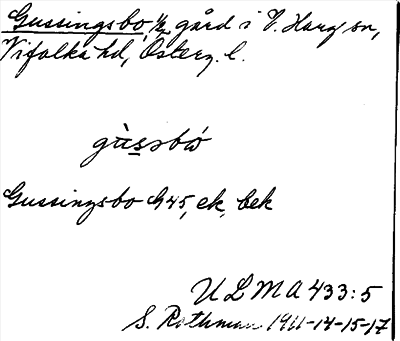 Gussingsbo, ½ gård i V. Harg sn,
Vifolka hd, Österg. l.
gùssbὼ
Gussingsbo G45, ek, bek
ULMA 433:5
S. Rothman 1911-14-15-17